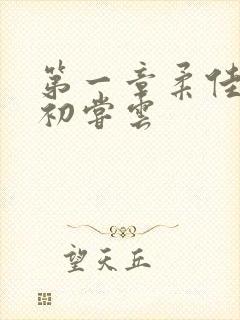 第一章柔佳
初尝雲
望天丘